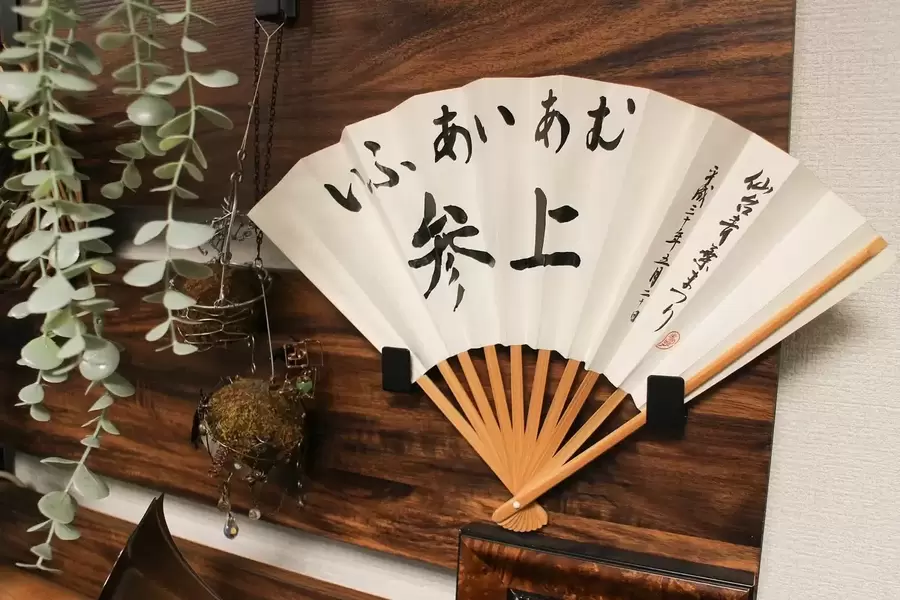 いふあいあむ
参上
仙台青葉まつり
平成三十年五月二十日